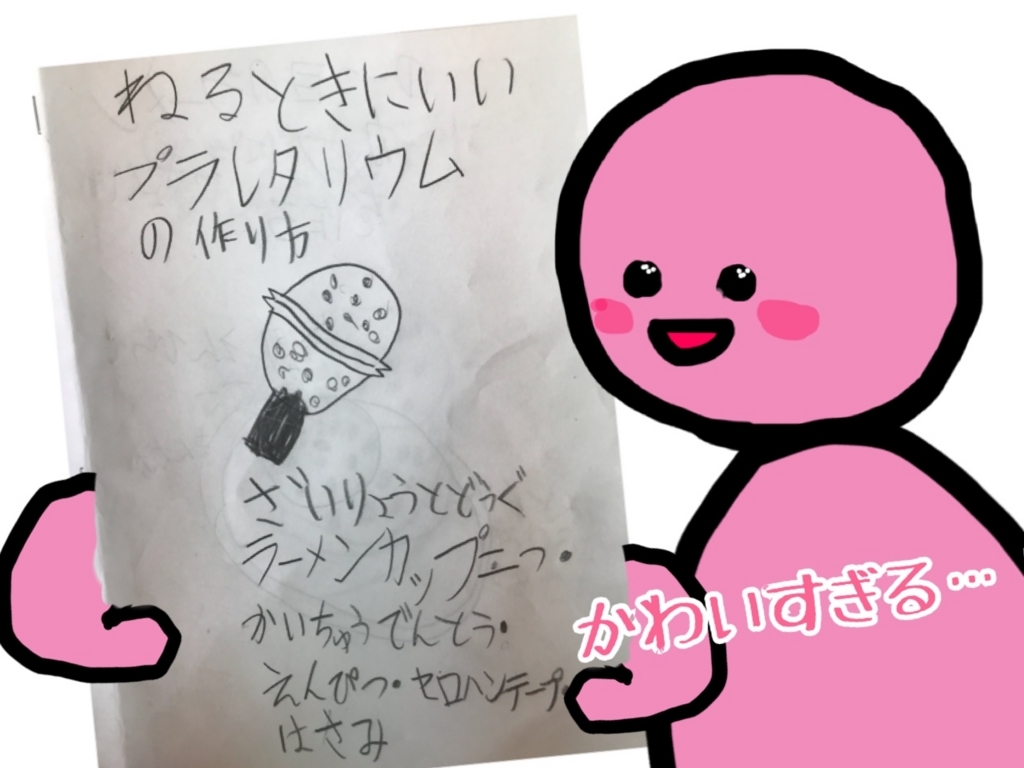 ねるときにいい
プラレタリウム
の作り方
ざいりょうとどうぐ
ラーメンカップ二つ・
かいちゅうでんとう・
えんぴつ・セロハンテープ・
はさみ
かわいすぎる…